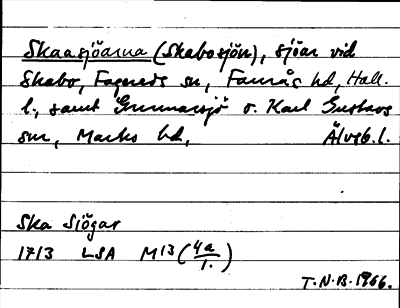 Skaasjöarna (Skabosjön), sjöar vid
Skabo, Fagereds sn, Faurås hd, Hall.
l., samt Gunnarsjö o. Karl Gustavs
snr, Marks hd, Älvsb. l.
Ska Siögar
1713 LSA M13 (4a/1.)
T.N.B. 1966.